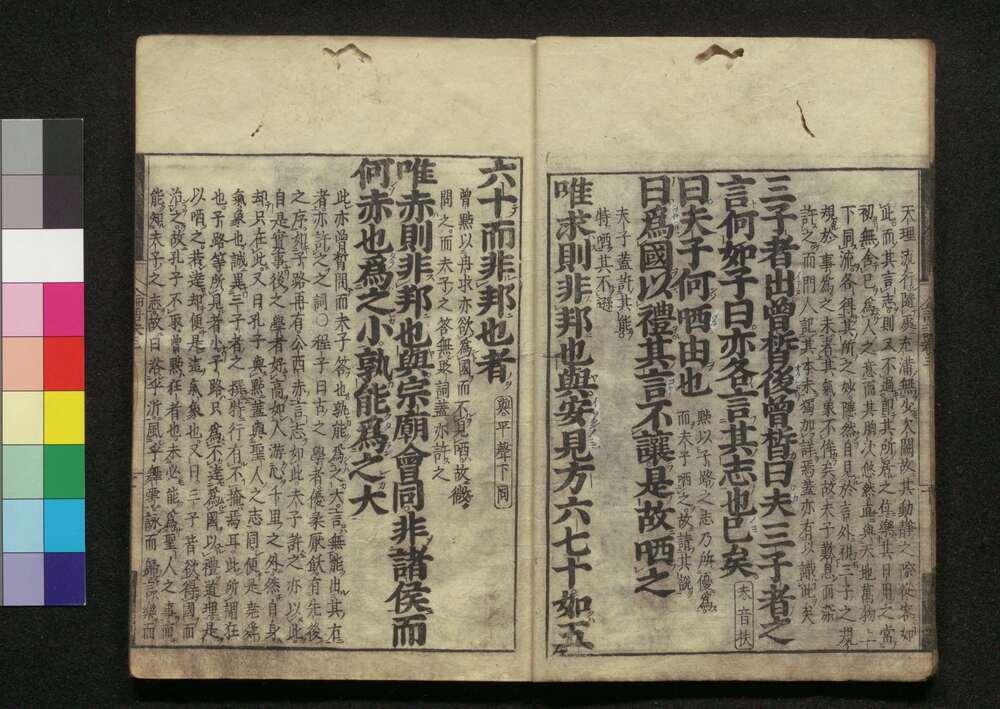 天理流行隨處充滿無少欠闕故其動靜之際從容如
此而其言志則又不過即其所居之位樂其日用之常
初無舍己爲人之意而其胸次悠然直與天地萬物上
下同流各得其所之妙隱然自見於言外視三子之規
規於事爲之末者其氣象不侔矣故夫子歎息而深
許之而門人記其本末獨加詳焉蓋亦有以識此矣
三子者出曾晳後曾晳曰夫三子者之
言何如子曰亦各言其志也已矣 夫音扶
曰夫子何哂由也 點以子路之志乃所優爲
而夫子哂之故請其說
曰爲國以禮其言不讓是故哂之
夫子蓋許其能
特哂其不遜
唯求則非邦也與安見方六七十如五
六十而非邦也者 與平聲下同
曾點以冉求亦欲爲國而不見哂故微
問之而夫子之答無貶詞蓋亦許之
唯赤則非邦也與宗廟會同非諸侯而
何赤也爲之小孰能爲之大
此亦曾晳問而夫子答也孰能爲之大言無能出其右
者亦許之之詞○程子曰古之學者優柔厭飫有先後
之序如子路冉有公西赤言志如此夫子許之亦以此
自是實事後之學者好高如人游心千里之外然自身
却只在此又曰孔子與點蓋與聖人之志同便是堯舜
氣象也誠異三子者之撰特行有不掩焉耳此所謂狂
也子路等所見者小子路只爲不達爲國以禮道理是
以哂之若達却便是這氣象也又曰三子皆欲得國而
治之故孔子不取曾點狂者也未必能爲聖人之事而
能知夫子之志故曰浴乎沂風乎舞雩詠而歸言樂而